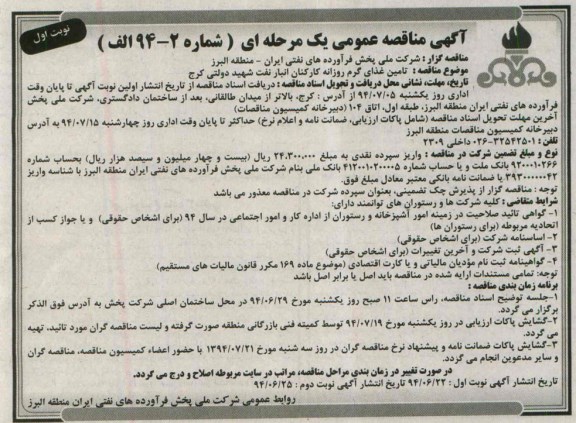 نوبت اول
آگهی مناقصه عمومی یک مرحله ای ( شماره ۲-۹۴ الف )
مناقصه گزار : شرکت ملی پخش فرآورده های نفتی ایران - منطقه البرز
موضوع مناقصه : تامین غذای گرم روزانه کارکنان انبار نفت شهید دولتی کرج
تاریخ، مهلت، نشانی محل دریافت و تحویل اسناد مناقصه : دریافت اسناد مناقصه از تاریخ انتشار اولین نوبت آگهی تا پایان وقت
اداری روز یکشنبه ۹۴/۰۷/۰۵ از آدرس : کرج، بالاتر از میدان طالقانی، بعد از ساختمان دادگستری، شرکت ملی پخش
فرآورده های نفتی ایران منطقه البرز، طبقه اول، اتاق ۱۰۴ (دبیرخانه کمیسیون مناقصات)
آخرین مهلت تحویل اسناد مناقصه (شامل پاکات ارزیابی، ضمانت نامه و اعلام نرخ) حداکثر تا پایان وقت اداری روز چهارشنبه ۹۴/۰۷/۱۵ به آدرس
دبیرخانه کمیسیون مناقصات منطقه البرز
تلفن : ۳۲۵۴۲۵۰۱-۰۲۶ داخلی ۲۳۰۹
نوع و مبلغ تضمین شرکت در مناقصه : واریز سپرده نقدی به مبلغ ۲۴,۳۰۰,۰۰۰ ریال (بیست و چهار میلیون و سیصد هزار ریال) بحساب شماره
۹۲۰۰۰۱۰۲۶۶ بانک ملت و یا حساب شماره ۴۱۲۰۰۱۰۲۰۰۰۵ بانک ملی بنام شرکت ملی پخش فرآورده های نفتی ایران منطقه البرز با شناسه واریز
۳۹۳۰۰۰۰۰۰۴۲ یا ضمانت نامه بانکی معتبر معادل مبلغ فوق.
توجه : مناقصه گزار از پذیرش چک تضمینی، بعنوان سپرده شرکت در مناقصه معذور می باشد
شرایط متقاضی : کلیه شرکت ها و رستوران های توانمند دارای:
۱- گواهی تائید صلاحیت در زمینه امور آشپزخانه و رستوران از اداره کار و امور اجتماعی در سال ۹۴ (برای اشخاص حقوقی) و یا جواز کسب از
اتحادیه مربوطه (برای رستوران ها)
۲- اساسنامه شرکت (برای اشخاص حقوقی)
۳- آگهی ثبت شرکت و آخرین تغییرات (برای اشخاص حقوقی)
۴- گواهینامه ثبت نام مؤدیان مالیاتی و یا کارت اقتصادی (موضوع ماده ۱۶۹ مکرر قانون مالیات های مستقیم)
توجه: تمامی مستندات ارایه شده در مناقصه باید اصل یا برابر اصل باشد
برنامه زمان بندی مناقصه :
۱-جلسه توضیح اسناد مناقصه، راس ساعت ۱۱ صبح روز یکشنبه مورخ ۹۴/۰۶/۲۹ در محل ساختمان اصلی شرکت پخش به آدرس فوق الذکر
برگزار می گردد.
۲-گشایش پاکات ارزیابی در روز یکشنبه مورخ ۹۴/۰۷/۱۹ توسط کمیته فنی بازرگانی منطقه صورت گرفته و لیست مناقصه گران مورد تائید، تهیه
می گردد.
۳-گشایش پاکات ضمانت نامه و پیشنهاد نرخ مناقصه گران در روز سه شنبه مورخ ۱۳۹۴/۰۷/۲۱ با حضور اعضاء کمیسیون مناقصه، مناقصه گران
و سایر مدعوین انجام می گردد.
در صورت تغییر در زمان بندی مراحل مناقصه، مراتب در سایت مربوطه اصلاح و درج می گردد.
تاریخ انتشار آگهی نوبت اول : ۹۴/۰۶/۲۲ تاریخ انتشار آگهی نوبت دوم : ۹۴/۰۶/۲۵
روابط عمومی شرکت ملی پخش فرآورده های نفتی ایران منطقه البرز